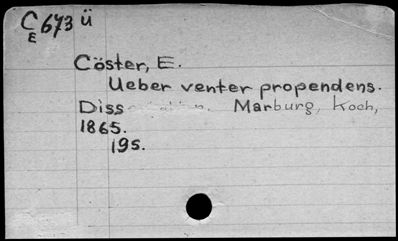 C673 ü
E
Cöster, E.
Ueber venter propendens.
Diss Marburg, Koch,
1865.
19s.